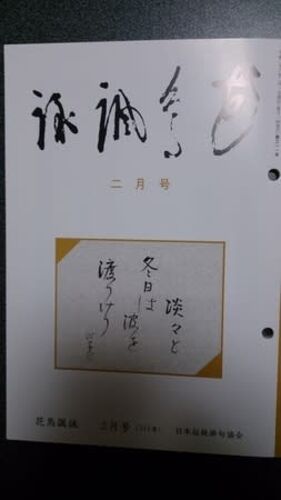 花鳥諷詠
二月号
淡々と
冬日は波を
渡りけり
花鳥諷詠 二月号 日本伝統俳句協会